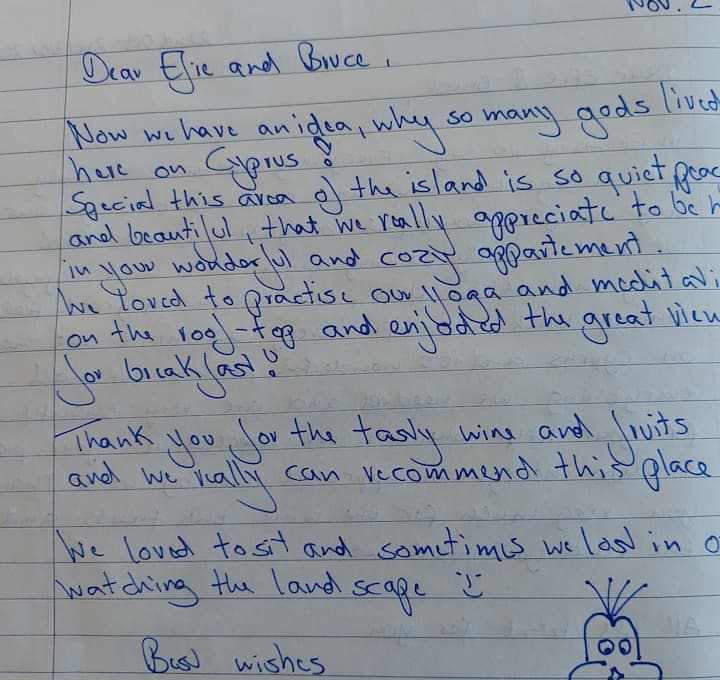 Nov. 2
Dear Efie and Bruce,
Now we have an idea, why so many gods lived
here on Cyprus!
Special this area of the island is so quiet peac
and beautiful, that we really appreciate to be h
in your wonderful and cozy appartement.
We loved to practise our yoga and meditati
on the roof-top and enjoded the great view
for breakfast!
Thank you for the tasty wine and fruits
and we really can recommend this place
We loved to sit and sometimes we last in o
watching the land scape :)
Best wishes